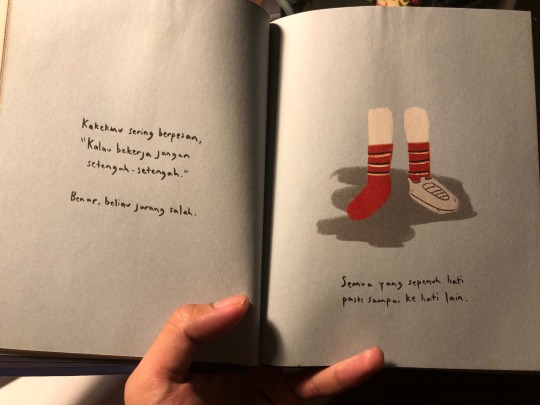 Kakekmu sering berpesan,
"Kalau bekerja jangan
setengah-setengah."
Benar, beliau jarang salah.
Semua yang sepenuh hati
pasti sampai ke hati lain.